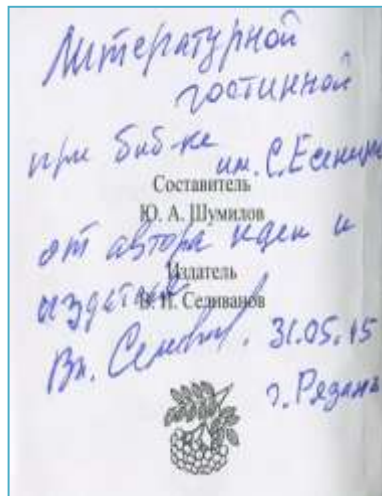 Литературной
гостинной
при биб-ке им. С. Есенина
Составитель
Ю. А. Шумилов
от автора идеи и
Издатель
издателя
В. И. Селиванов
Вл. Селиванов. 31.05.15
г. Рязань